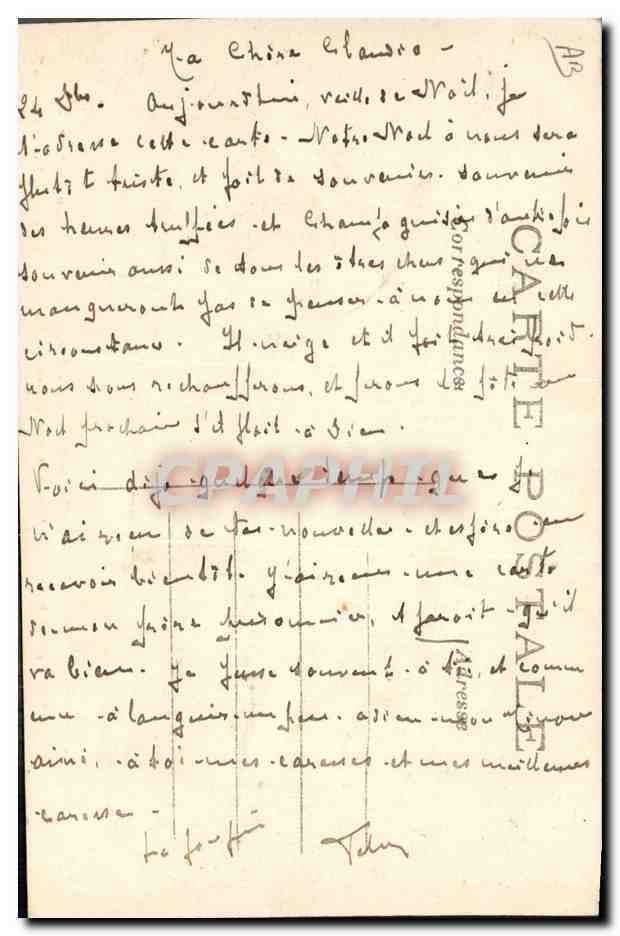 Ma Chère Claudia -
24 Xbre. Aujourd'hui, veille de Noël, je
t'adresse cette carte - Notre Noël à nous sera
plutôt triste, et fait de souvenirs. souvenir
des heures truffées et champagnisées d'autrefois
souvenir aussi de tous les êtres chers qui ne
manqueront pas de penser à nous en cette
circonstance. Il neige et il fait très froid.
nous nous rechaufferons, et ferons la fête au
Noël prochain s'il plait à Dieu.
Voici déjà quelque temps que je
n'ai rien de tes nouvelles et espère en
recevoir bientôt. J'ai reçu une carte
de mon frère prisonnier, il parait qu'il
va bien. Je pense souvent à toi, et comm
ence à languir un peu. adieu mon
ainsi, à toi mes caresses et mes meilleures
caresses -
CARTE POSTALE
Correspondance
Adresse
AB
CPAPHIL